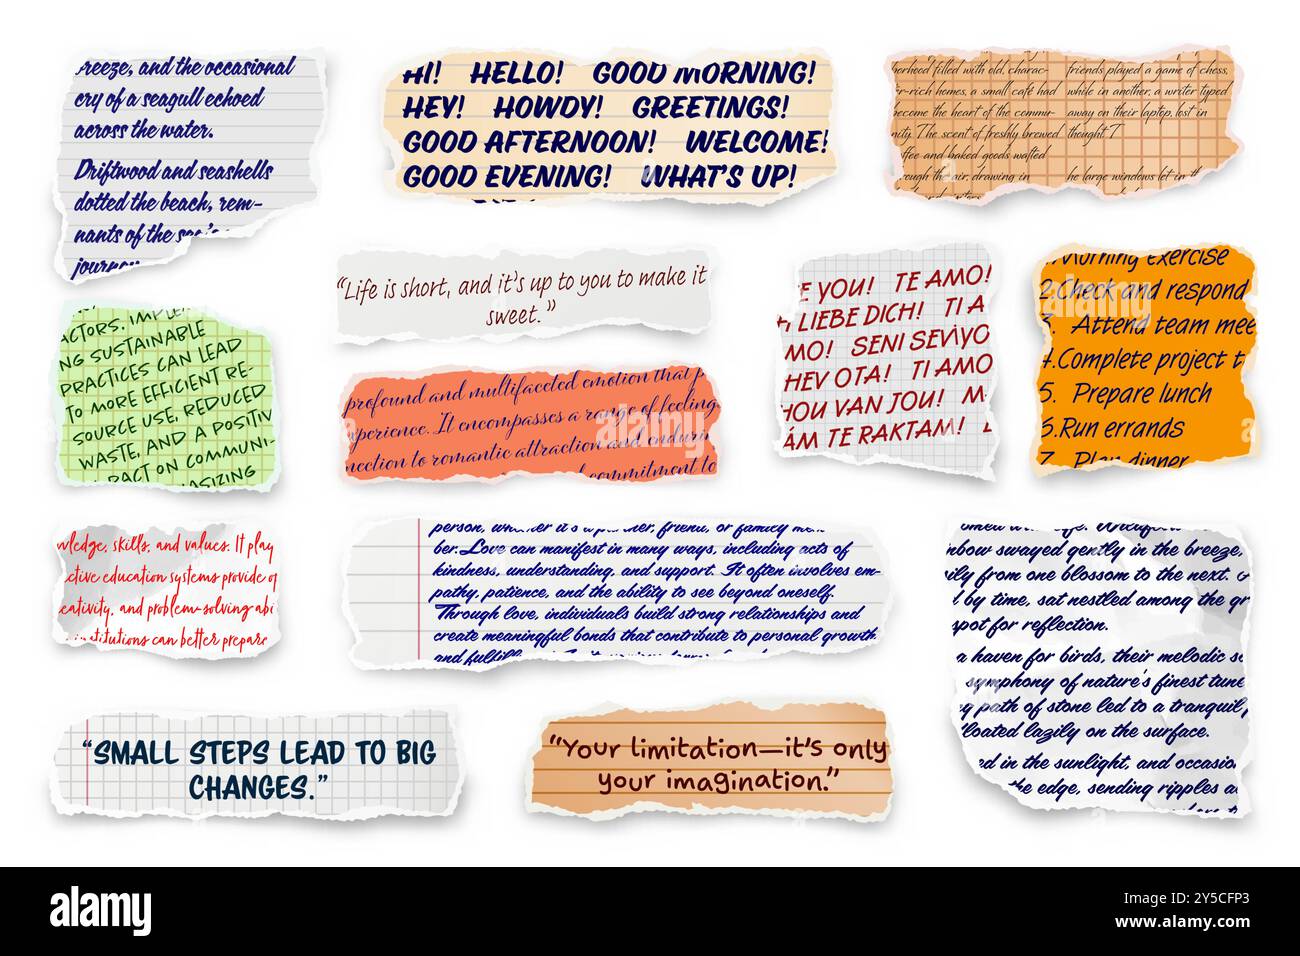 breeze, and the occasional
cry of a seagull echoed
across the water.
Driftwood and seashells
dotted the beach, rem-
nants of the sea's
journey
HI! HELLO! GOOD MORNING!
HEY! HOWDY! GREETINGS!
GOOD AFTERNOON! WELCOME!
GOOD EVENING! WHAT'S UP!
filled with old, charac-
r-rich homes, a small café had
become the heart of the commu-
nity. The scent of freshly brewed
ffee and baked goods wafted
rough the air, drawing in
friends played a game of chess,
while in another, a writer typed
away on their laptop, lost in
thought. T
he large windows let in th
"Life is short, and it's up to you to make it
sweet."
E YOU! TE AMO!
LIEBE DICH! TI A
MO! SENI SEVIYO
HEV OTA! TI AMO
HOU VAN JOU! M
ÁM TE RAKTAM! L
1.Morning exercise
2.Check and respond
3. Attend team mee
4.Complete project t
5. Prepare lunch
6.Run errands
7. Plan dinner
ACTORS. IMPLEM
NG SUSTAINABLE
PRACTICES CAN LEAD
TO MORE EFFICIENT RE-
SOURCE USE, REDUCED
WASTE, AND A POSITIV
PACT ON COMMUNI-
ASIZING
profound and multifaceted emotion that p
xperience. It encompasses a range of feeling
nection to romantic attraction and endurin
commitment to
wledge, skills, and values. It play
ctive education systems provide q
eativity, and problem-solving abi
institutions can better prepare
person, whether it's a partner, friend, or family mem-
ber. Love can manifest in many ways, including acts of
kindness, understanding, and support. It often involves em-
pathy, patience, and the ability to see beyond oneself.
Through love, individuals build strong relationships and
create meaningful bonds that contribute to personal growth
and
nbow swayed gently in the breeze,
ily from one blossom to the next. A
d by time, sat nestled among the gr
spot for reflection.
a haven for birds, their melodic so
symphony of nature's finest tune
y path of stone led to a tranquil p
floated lazily on the surface.
ed in the sunlight, and occasion
the edge, sending ripples a
"SMALL STEPS LEAD TO BIG
CHANGES."
"Your limitation—it's only
your imagination."
alamy
Image ID: 2Y5CFP3
www.alamy.com